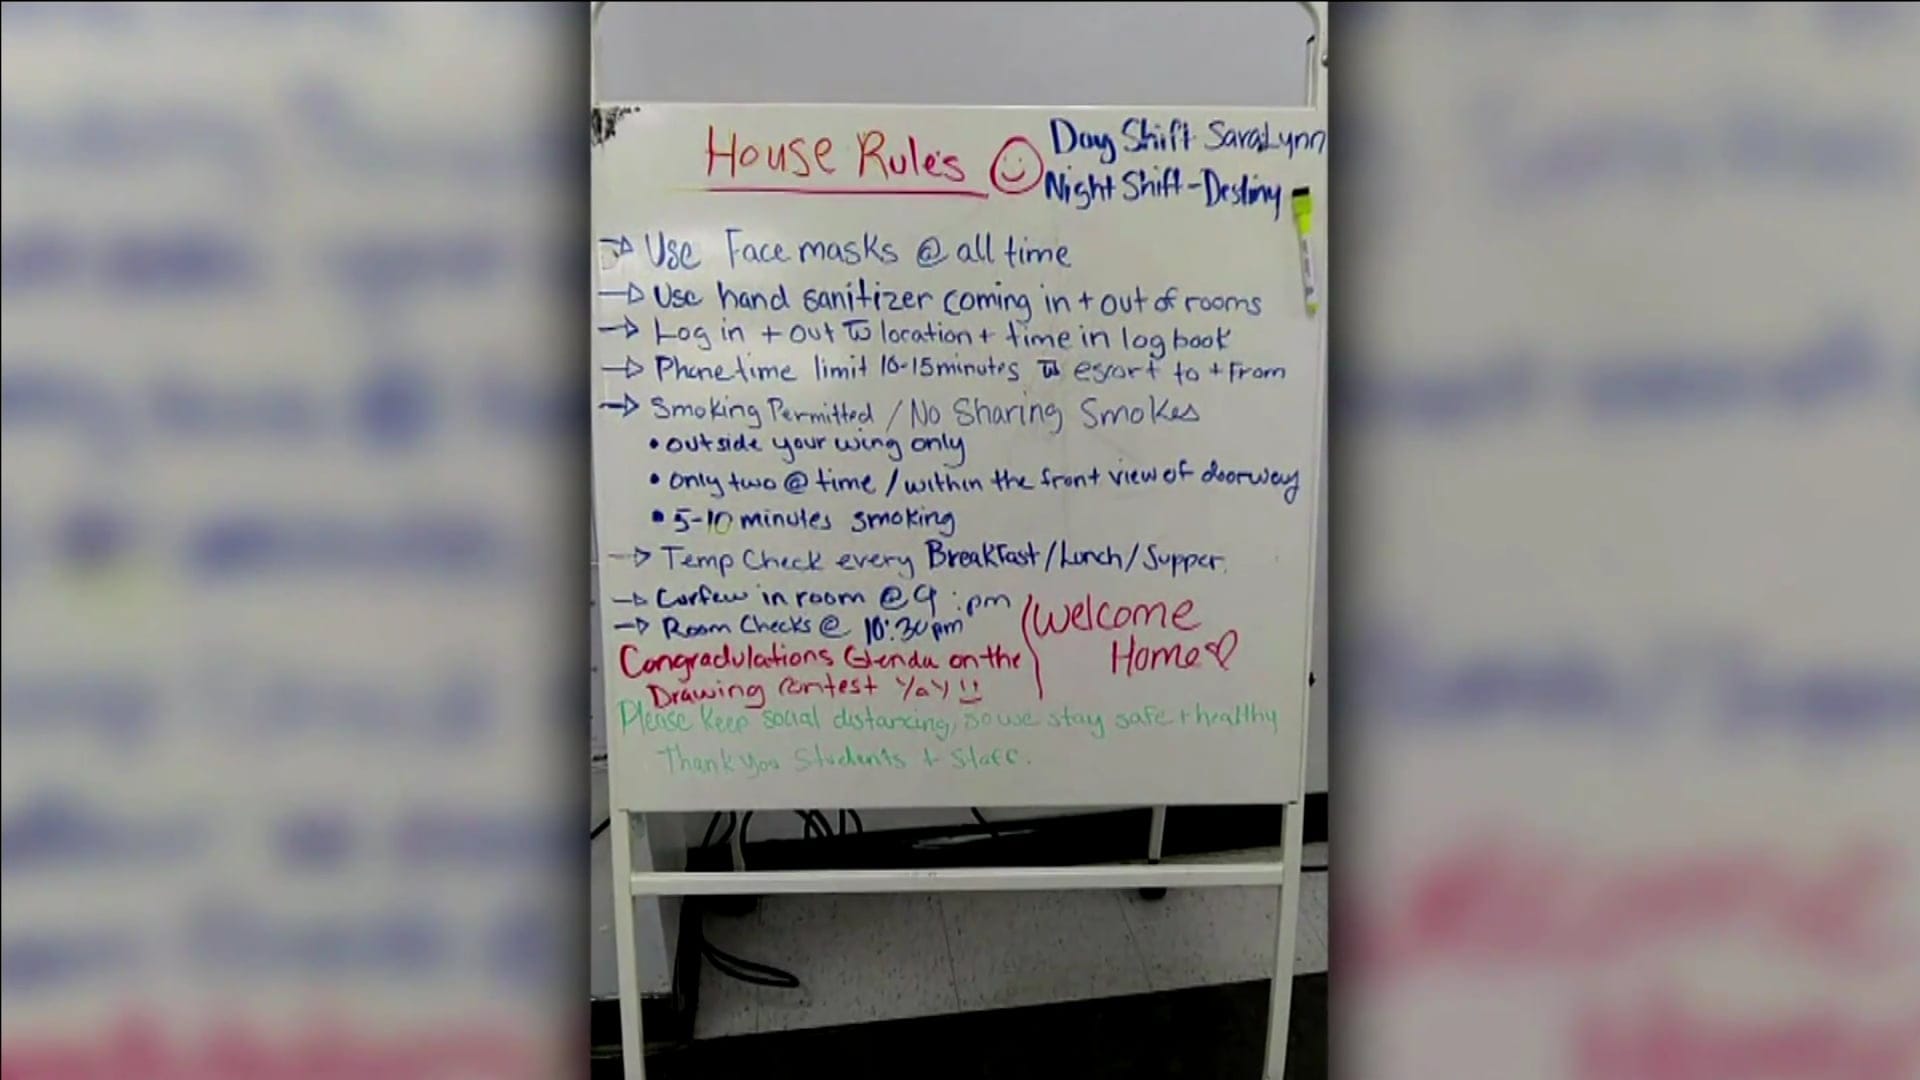 House Rules
Day Shift SaraLynn
Night Shift - Destiny
Use Face masks @ all time
Use hand sanitizer coming in + out of rooms
Log in + out w location + time in log book
Phone time limit 10-15 minutes w escort to + From
Smoking Permitted / No Sharing Smokes
• outside your wing only
• only two @ time / within the front view of doorway
• 5-10 minutes smoking
Temp Check every Breakfast / Lunch / Supper.
Curfew in room @ 9 : pm
Room Checks @ 10:30pm
Welcome
Home
Congradulations Glenda on the
Drawing contest Yay!!
Please Keep social distancing, so we stay safe + healthy
Thank you Students + Staff.